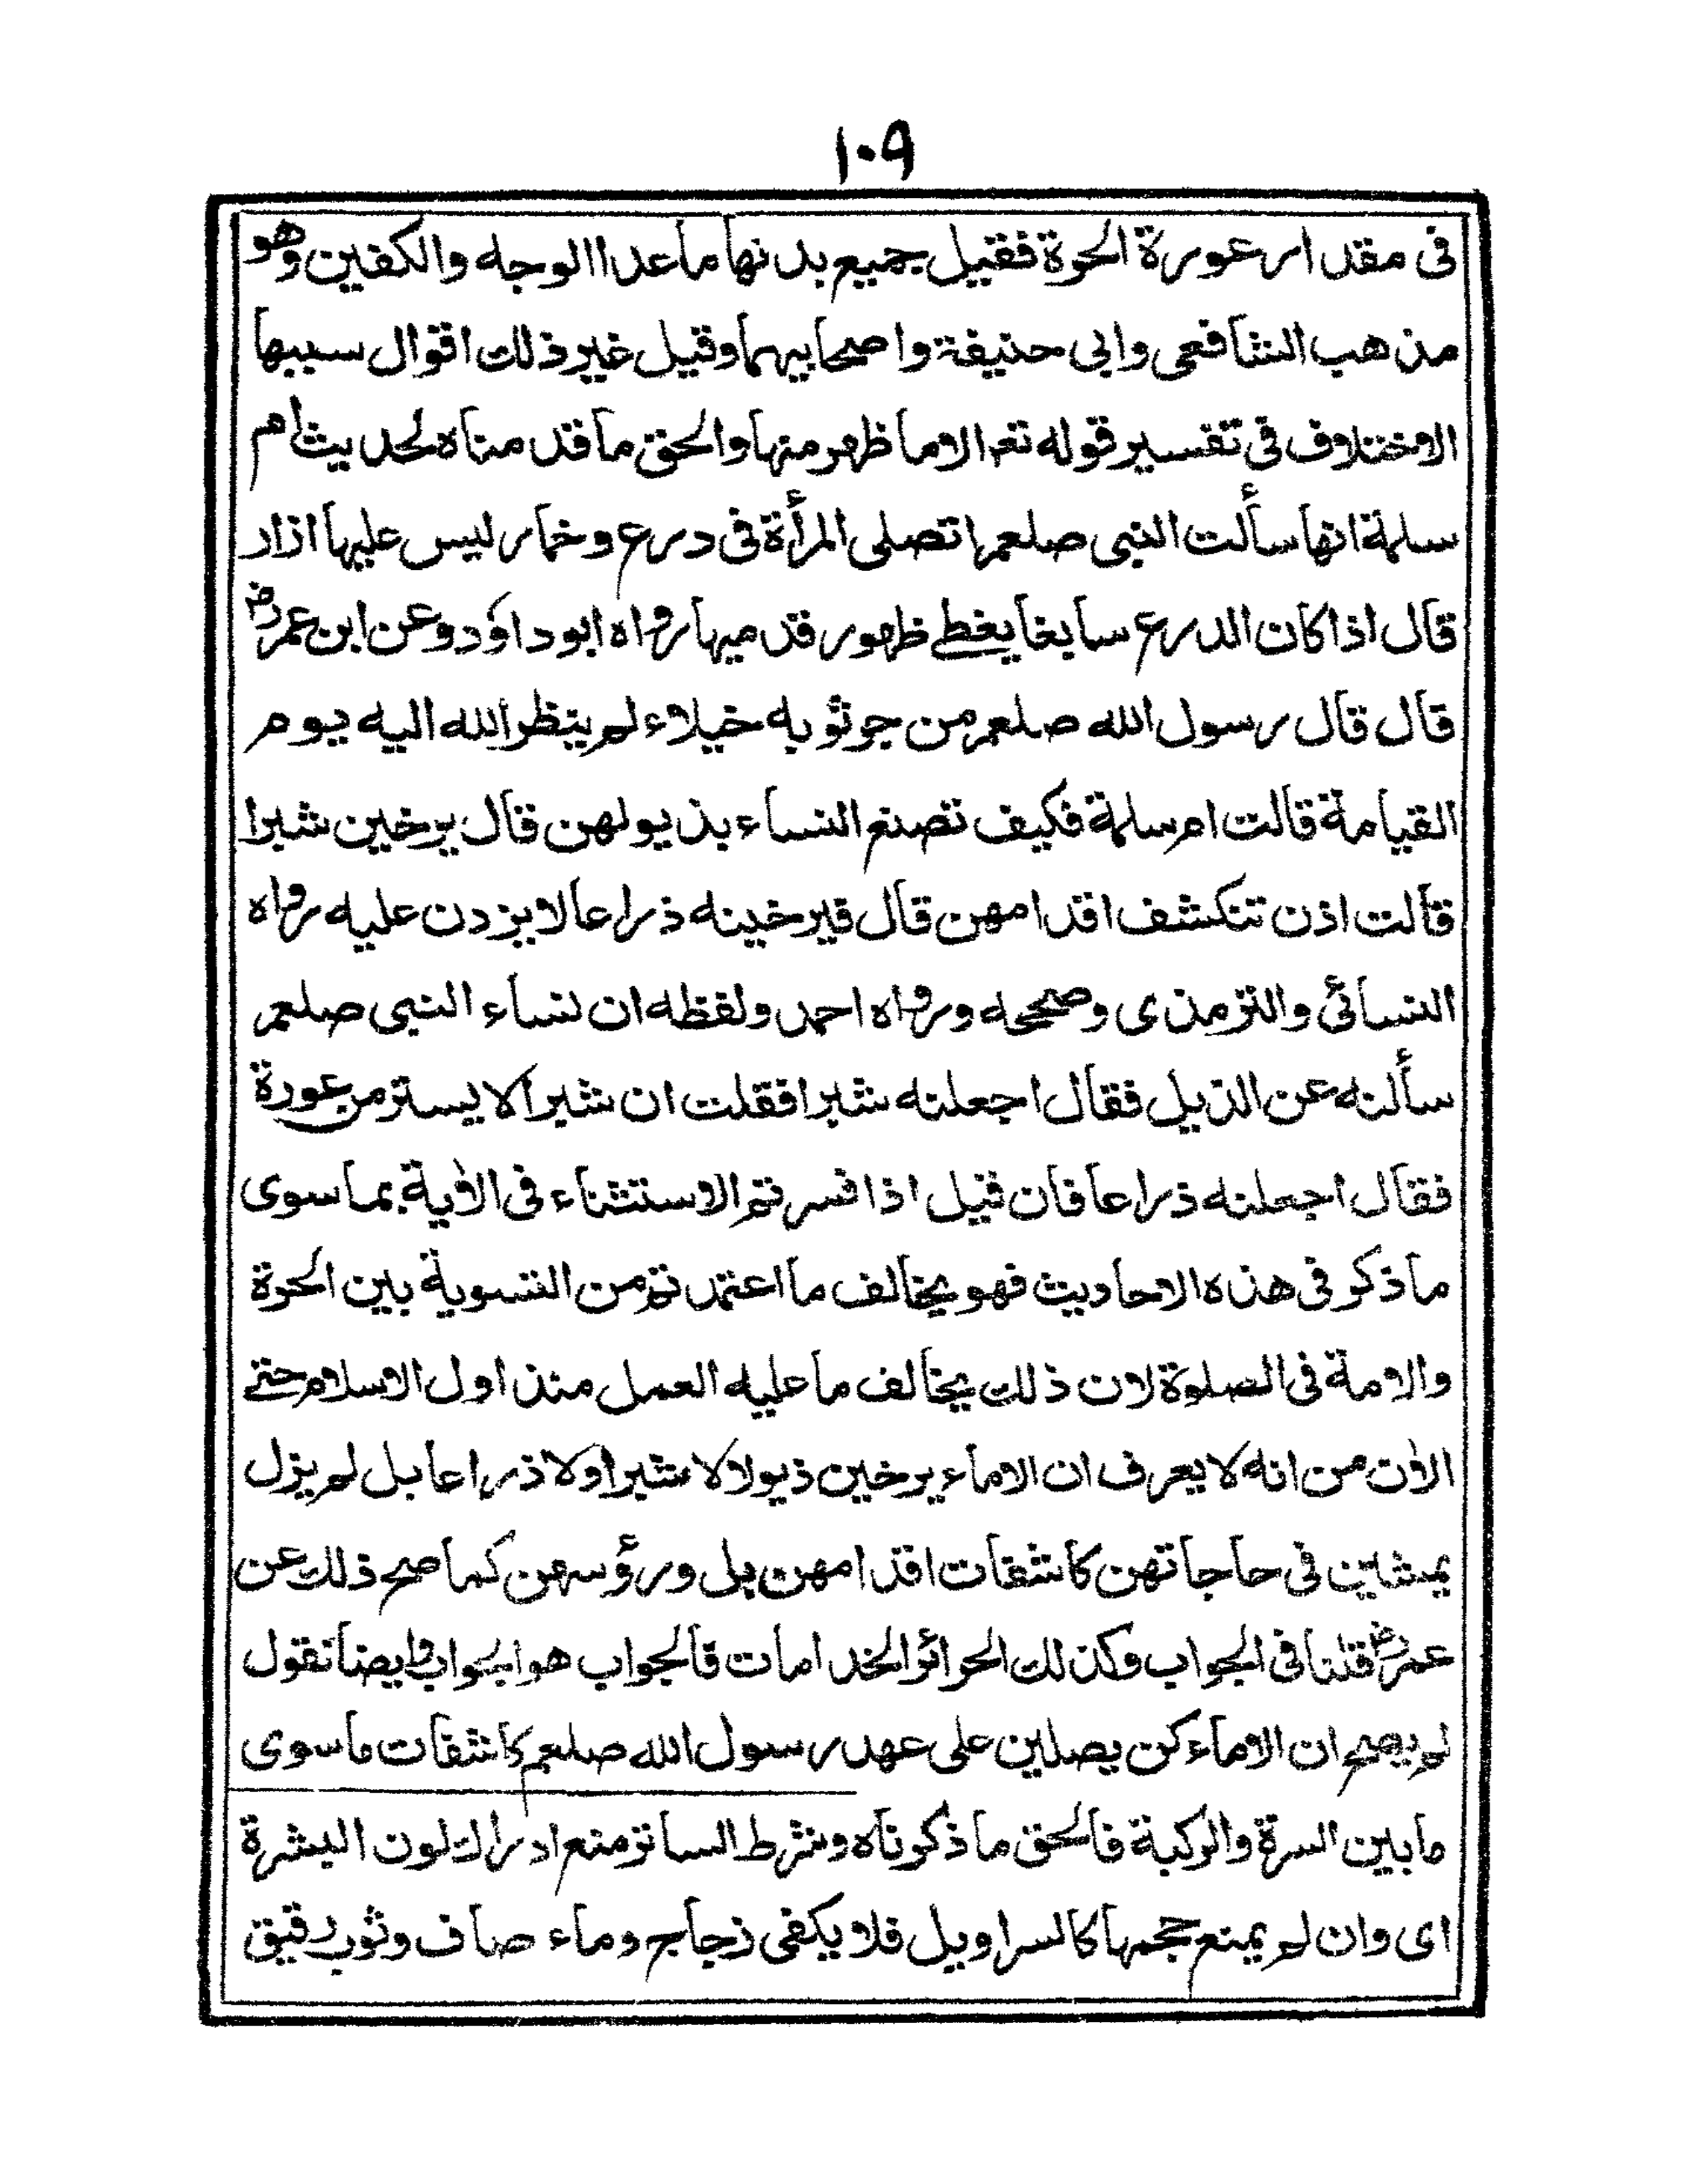 ١٠٩
فى مقدار عورة الحرة فقيل جميع بدنها ماعدا الوجه والكفين وهو
مذهب الشافعى وابى حنيفة واصحابيهما وقيل غير ذلك اقوال سببها
الاختلاف فى تفسير قوله تعم الاما ظهر منها والحق ما قدمناه لحديث ام
سلمة انها سألت النبى صلعم اتصلى المرأة فى درع وخمار ليس عليها ازار
قال اذا كان الدرع سابغا يغطى ظهور قدميها رواه ابو داؤد وعن ابن عمر رض
قال قال رسول الله صلعم من جر ثوبه خيلاء لم ينظر الله اليه يوم
القيامة قالت ام سلمة فكيف تصنع النساء بذيولهن قال يرخين شبرا
قالت اذن تنكشف اقدامهن قال فيرخينه ذراعا لا يزدن عليه رواه
النسائى والترمذى وصححه ورواه احمد ولفظه ان نساء النبى صلعم
سألنه عن الذيل فقال اجعلنه شبرا فقلت ان شبرا لا يستر من عورة
فقال اجعلنه ذراعا فان قيل اذا فسرتم الاستثناء فى الأية بما سوى
ما ذكر فى هذه الاحاديث فهو يخالف ما اعتمدتم من التسوية بين الحرة
والامة فى الصلوة لان ذلك يخالف ما عليه العمل منذ اول الاسلام حتى
الأن من انه لا يعرف ان الاماء يرخين ذيولا لا شبرا ولا ذراعا بل لم يزل
يمشين فى حاجاتهن كاشفات اقدامهن بل ورؤسهن كما صح ذلك عن
عمر رض قلنا فى الجواب وكذلك الحرائر الخدامات فالجواب هو الجواب وايضا نقول
لم يصح ان الاماء كن يصلين على عهد رسول الله صلعم كاشفات ما سوى
ما بين السرة والركبة فالحق ما ذكرناه وشرط الساتر منع ادراك لون البشرة
اى وان لم يمنع حجمها كالسراويل فلا يكفى زجاج وماء صاف وثوب رقيق